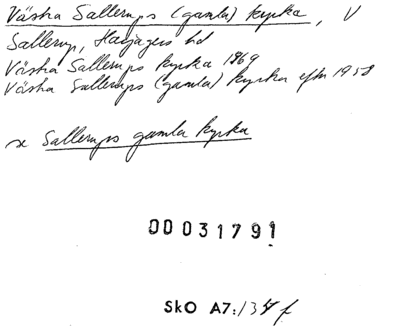 Västra Sallerups (gamla) kyrka, V
Sallerup, Harjagers hd
Västra Sallerups kyrka 1869
Västra Sallerups (gamla) kyrka efter 1958
se Sallerups gamla kyrka
00031791
SkO A7:134 f